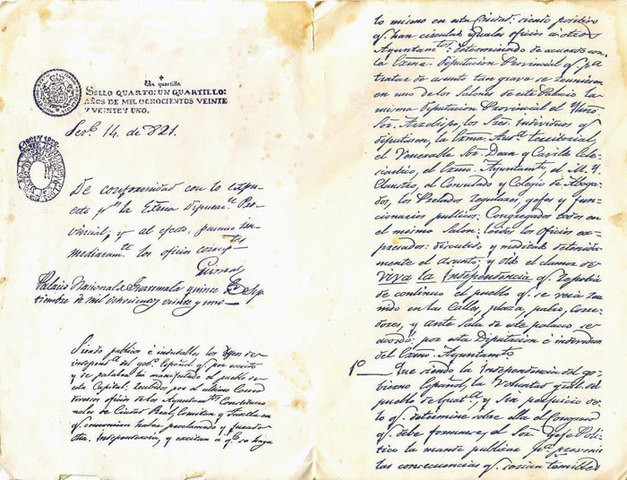 Un quartillo.
SELLO QUARTO: UN QUARTILLO:
AÑOS DE MIL OCHOCIENTOS VEINTE
Y VEINTE Y UNO.
14. de 821.
De conformidad con lo
la Exma
y al efecto,
los oficios
Palacio Nacional de Guatemala quince de
tiembre de mil ochocientos veinte y uno
Siendo publicos é indudables los deseos de
del gobo. Español qe. por escrito
y de palabra ha manifestado el pueblo de
esta Capital: recibidos por el ultimo Correo
oficios de los Ayuntamtos.
de Ciudad Real, Comitan y Tuxtla en
qe. comunican haber proclamado y jurado
dha. Independencia, y excitan á qe. se haga
lo mismo en esta Ciudad: siendo positivo
qe. han circulado iguales oficios á otros
Ayuntamtos: determinado de acuerdo con
la Exma. Diputacion Provincial qe. pa.
tratar de asunto tan grave se
en uno de los Salones de este Palacio la
misma Diputacion Provincial, el
Sor. Arzobispo, los Sres. individuos qe.
la Exma. Auda. territorial,
el Venerable Sor. Dean y Cavildo Ecle-
siastico, el Exmo. Ayuntamto., el M. Y.
Claustro, el Consulado y Colegio de Aboga-
dos, los Prelados regulares, gefes y fun-
cionarios publicos: Congregados todos en
el mismo Salon: leidos los oficios ex-
presados: discutido y meditado detenida-
mente el asunto; y oido el clamor de
Viva la Independencia qe. repetia
de continuo el pueblo qe. se veia reu-
nido en las calles, plaza, patio, corre-
dores, y ante Sala de este palacio se
acordó: por esta Diputacion é individuos
del Exmo. Ayuntamto.
1o. Que siendo la Independencia del go-
bierno Español, la Voluntad gral. del
pueblo de Guata. y sin perjuicio de
lo qe. determine sobre ella el Congreso
qe. debe formarse, el Sor. Gefe Poli-
tico la mande publicar pa. prevenir
las consecuencias qe. serian temibles